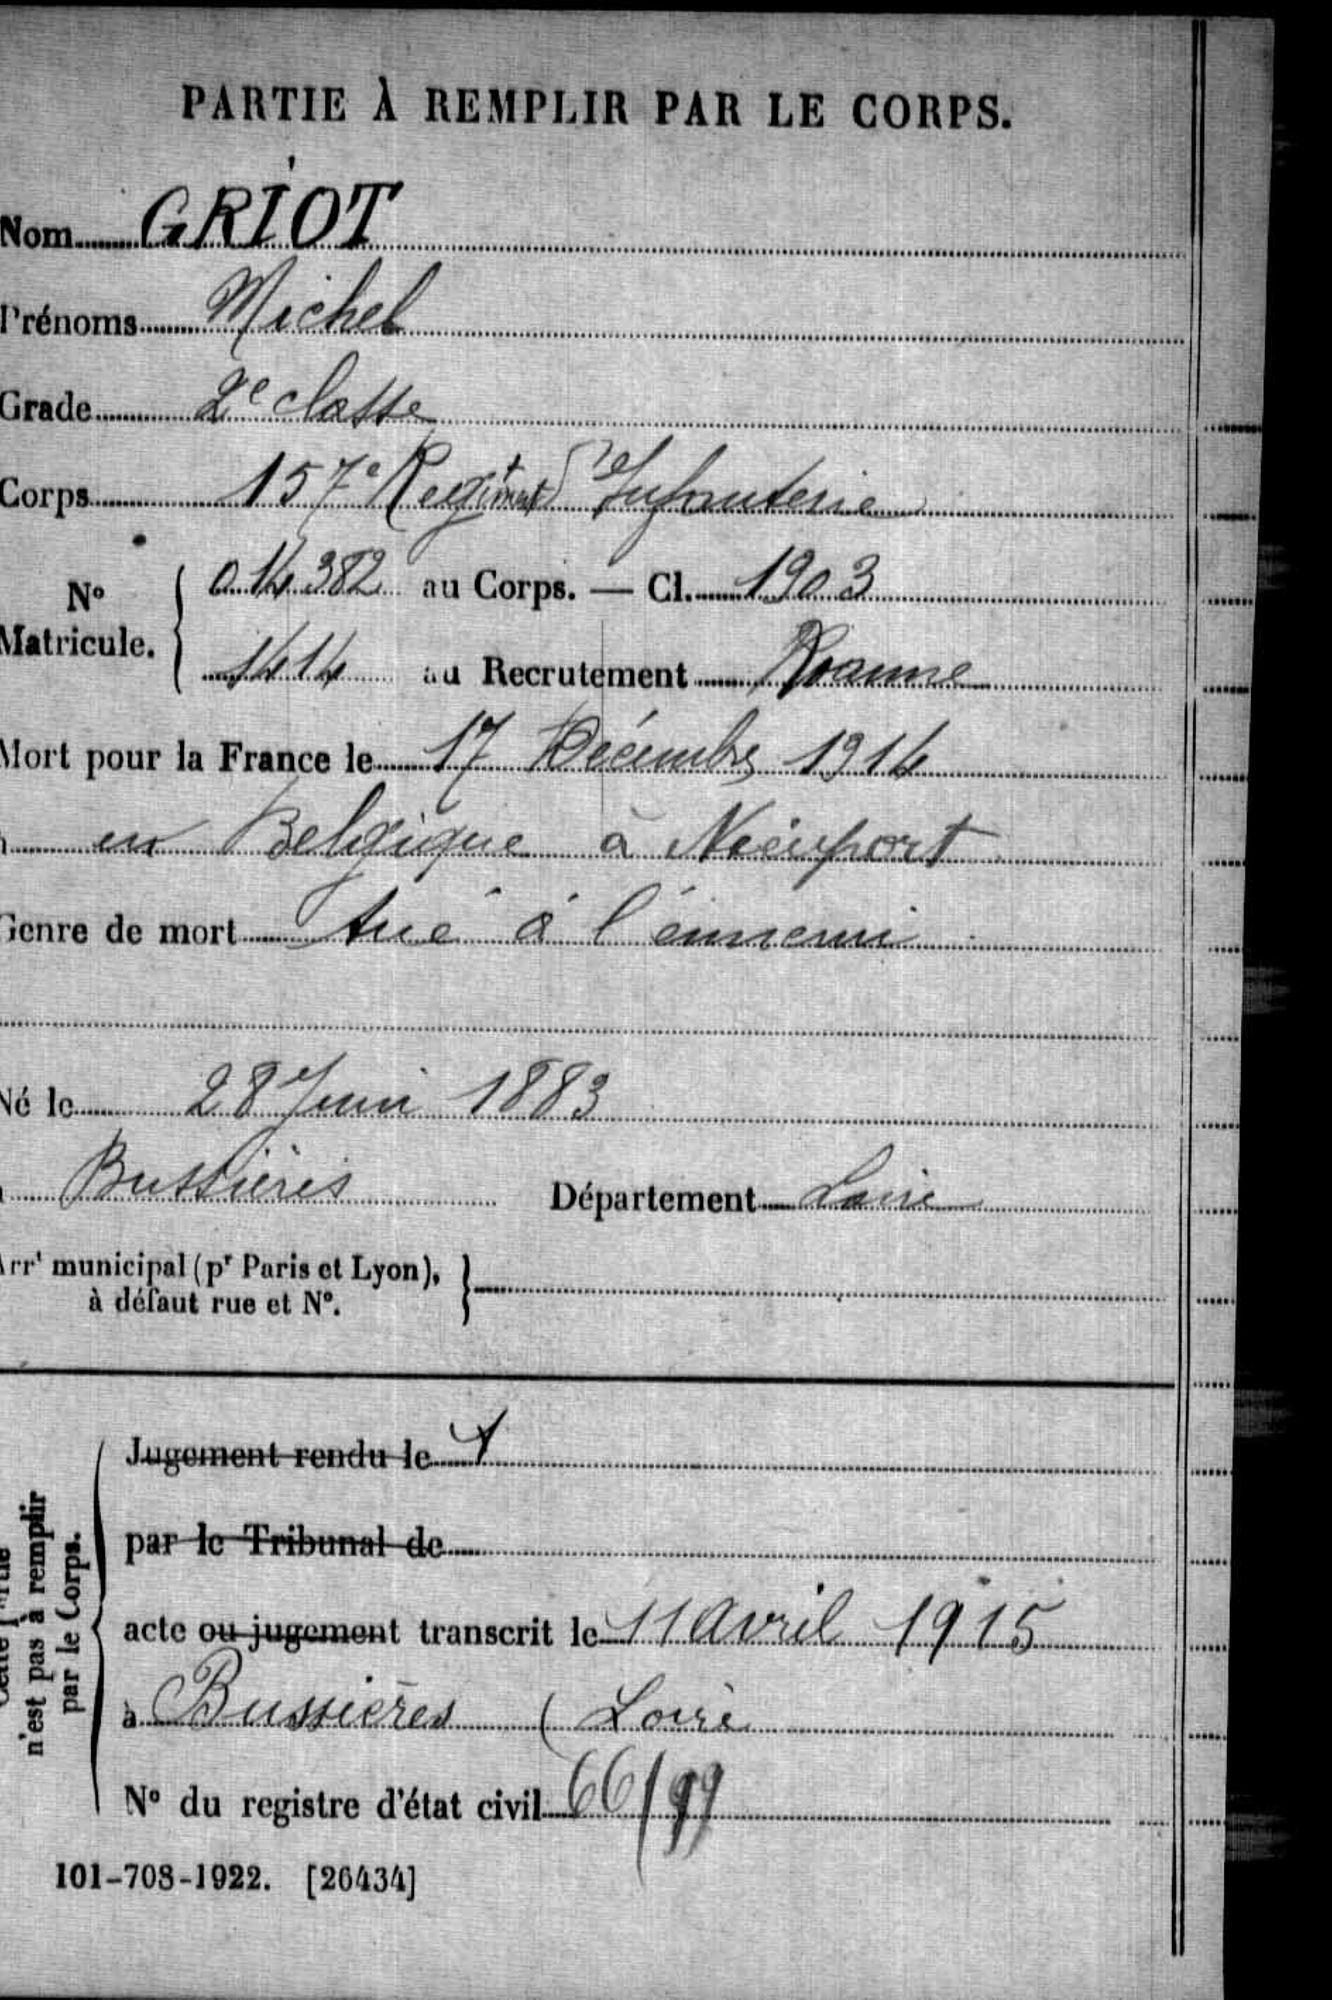 PARTIE À REMPLIR PAR LE CORPS.
Nom GRIOT
Prénoms Michel
Grade 2e classe
Corps 157e Régiment d'Infanterie
No Matricule. { 0.14.382 au Corps. — Cl. 1903
1414 au Recrutement Roanne
Mort pour la France le 17 Décembre 1914
en Belgique à Nieuport
Genre de mort tué à l'ennemi
Né le 28 Juin 1883
Bussières Département Loire
Arrt municipal (pr Paris et Lyon),
à défaut rue et No.
Jugement rendu le
par le Tribunal de
acte ou jugement transcrit le 11 avril 1915
à Bussières (Loire
No du registre d'état civil 66/99
n'est pas à remplir
par le Corps.
101-708-1922. [26434]